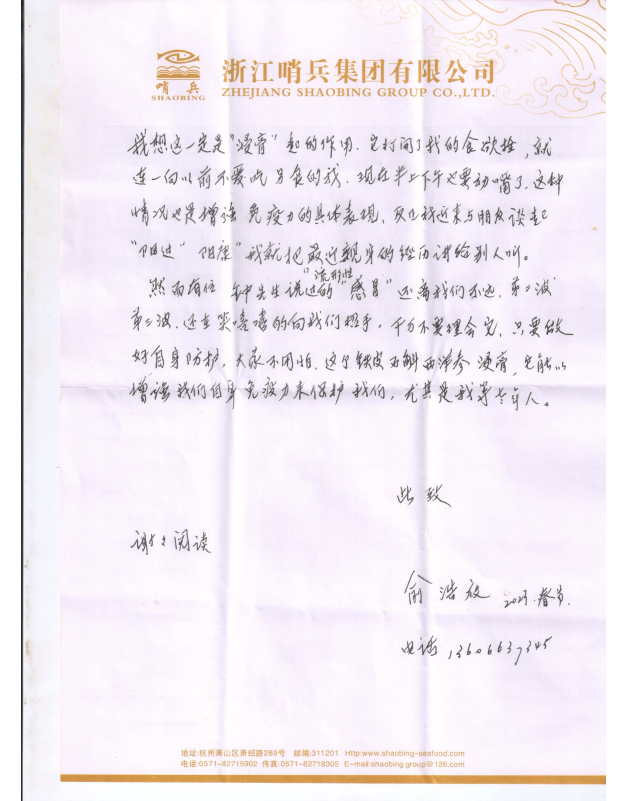 哨兵
SHAOBING
浙江哨兵集团有限公司
ZHEJIANG SHAOBING GROUP CO.,LTD.
我想这一定是“浸膏”起的作用。它打开了我的食欲栓，就
连一向以前不爱吃另食的我，现在半上下午也要动嘴了。这种
情况也是增强免疫力的具体表现，反正我近来与朋友谈起
“阳过”“阳康”我就把最近亲身的经历讲给别人听。
然而有位钟先生说过的“流形性感冒”还离我们不远，第二波
第三波，还在笑嘻嘻的向我们招手，千万不要理会它，只要做
好自身防护，大家不用怕，这个铁皮石斛西洋参浸膏，它能以
增强我们自身免疫力来保护我们，尤其是我等老年人。
此致
谢谢阅读
俞浩放 2023.春节.
电话 13606637345
地址:杭州萧山区萧绍路289号 邮编:311201 Http:www.shaobing-seafood.com
电话:0571-82715902 传真:0571-82718305 E-mail:shaobing group@126.com